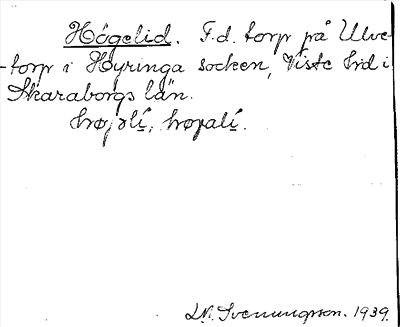 Högelid. F.d. torp på Ulve-
torp i Hyringa socken, Viste hd i
Skaraborgs län.
S. N. Svenungsson. 1939.